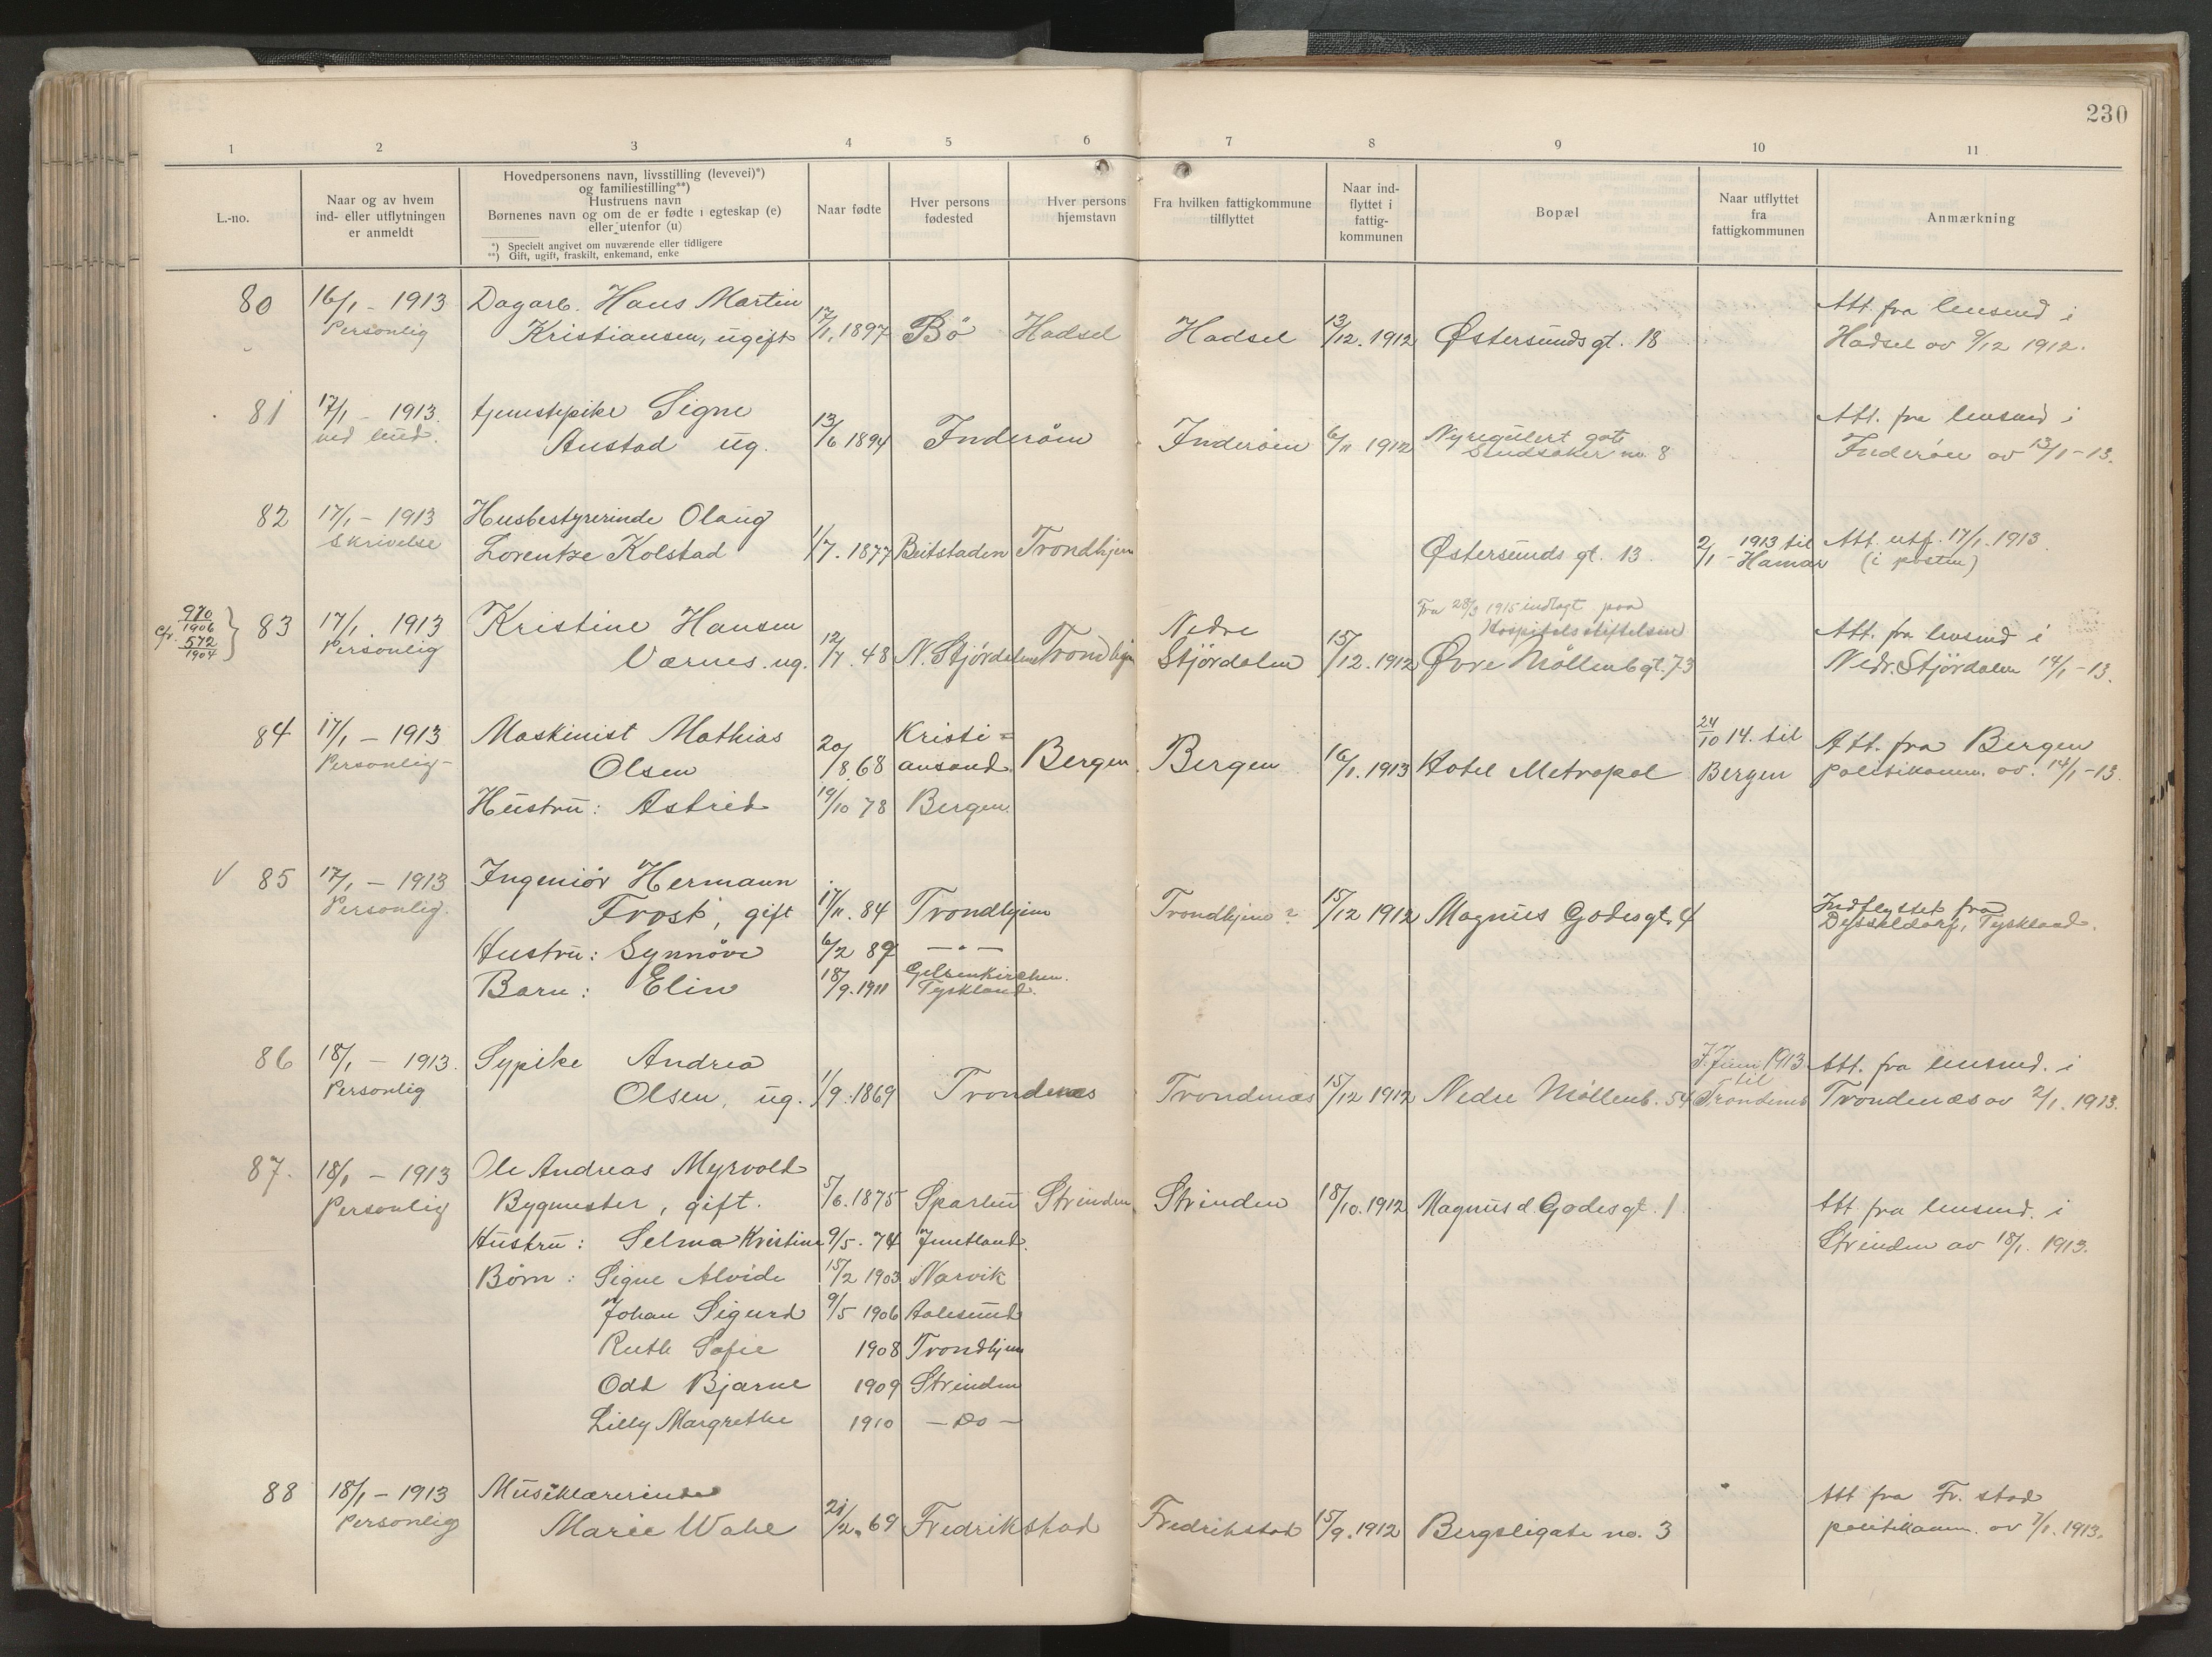 230
1 2 3 4 5 6 7 8 9 10 11
L.-no.
Naar og av hvem
ind- eller utflytningen
er anmeldt
Hovedpersonens navn, livsstilling (levevei)*)
og familiestilling**)
Hustruens navn
Børnenes navn og om de er fødte i egteskap (e)
eller utenfor (u)
*) Specielt angivet om nuværende eller tidligere
**) Gift, ugift, fraskilt, enkemand, enke
Naar fødte
Hver persons
fødested
Hver persons
hjemstavn
Fra hvilken fattigkommune
tilflyttet
Naar ind-
flyttet i
fattig-
kommunen
Bopæl
Naar utflyttet
fra
fattigkommunen
Anmærkning
80 16/1 - 1913 Dagarb. Hans Martin Att. fra lensmd i
Personlig Kristiansen, ugift 17/1. 1897 Bö Hadsel Hadsel 13/12. 1912 Østersunds gt. 18 Hadsel av 9/12 1912.
81 17/1 - 1913. tjenestepike Signe Att. fra lensmd i
ved bud. Austad ug. 13/6 1894 Inderöen Inderöen 6/11 1912 Nyregulert gate
no. 8 Inderöen av 13/1-13.
82 17/1 - 1913 Husbestyrerinde Olaug
Skrivelse Lorentze Kolstad 1/7. 1877 Beitstaden Trondhjem Østersunds gt. 13. 2/1 - 1913 til Hamar Att. utf. 17/1. 1913
(i posten)
cfr. 970/1906 572/1904 } 83 17/1. 1913 Kristine Hansen Nedre Fra 28/3 1915 indlagt paa
Hospitalsstiftelsen Att. fra lensmd i
Personlig Værnes. ug. 12/7. 48 N. Stjördalen Trondhjem Stjördalen 15/12. 1912 Øvre Möllenb gt. 73 Nedr. Stjördalen 14/1-13.
84 17/1 - 1913 Maskinist Mathias Kristi= 24/10 14. til Att. fra Bergen
Personlig - Olsen 20/8 68 ansand. Bergen Bergen 16/1. 1913 Hotel Metropol Bergen politikamm. av. 14/1-13.
Hustru: Astrid 19/10 78 Bergen.
√ 85 17/1 - 1913 Ingeniör Hermann
Personlig. Frost, gift 17/11. 84 Trondhjem Trondhjem ? 15/12 1912 Magnus Godes gt. 4 Indflyttet fra
Düsseldorf, Tyskland.
Hustru: Synnöve 6/2 89 — " —
Barn: Elin 18/9. 1911 Gelsenkirchen.
Tyskland.
86 18/1 - 1913. Sypike Andrea 7. Juni 1913 Att. fra lensmd. i
Personlig Olsen, ug. 1/9. 1869 Trondenæs Trondenæs 15/12 1912 Nedre Möllenb. 54 til Trondenæs Trondenæs av 2/1. 1913.
87. 18/1 - 1913 Ole Andreas Myrvold
Personlig Bygmester, gift. 5/6. 1875 Sparbu Strinden Strinden 18/10. 1912 Magnus d. Godes gt. 1 Att. fra lensmd. i
Hustru: Selma Kristine 9/5. 74 Jemtland. Strinden av 18/1. 1913.
Børn: Signe Alvide 15/2 1903 Narvik
Johan Sigurd 9/5 1906 Aalesund
Ruth Sofie 1908 Trondhjem
Odd Bjarne 1909 Strinden
Lilly Margrethe 1910 — Do —
88 18/1 - 1913 Musiklærerinde Att fra Fr. stad
Personlig Marie 21/2. 69 Fredrikstad Fredrikstad 15/9. 1912 Bergsligate no. 3 politikamm. av 7/1. 1913.